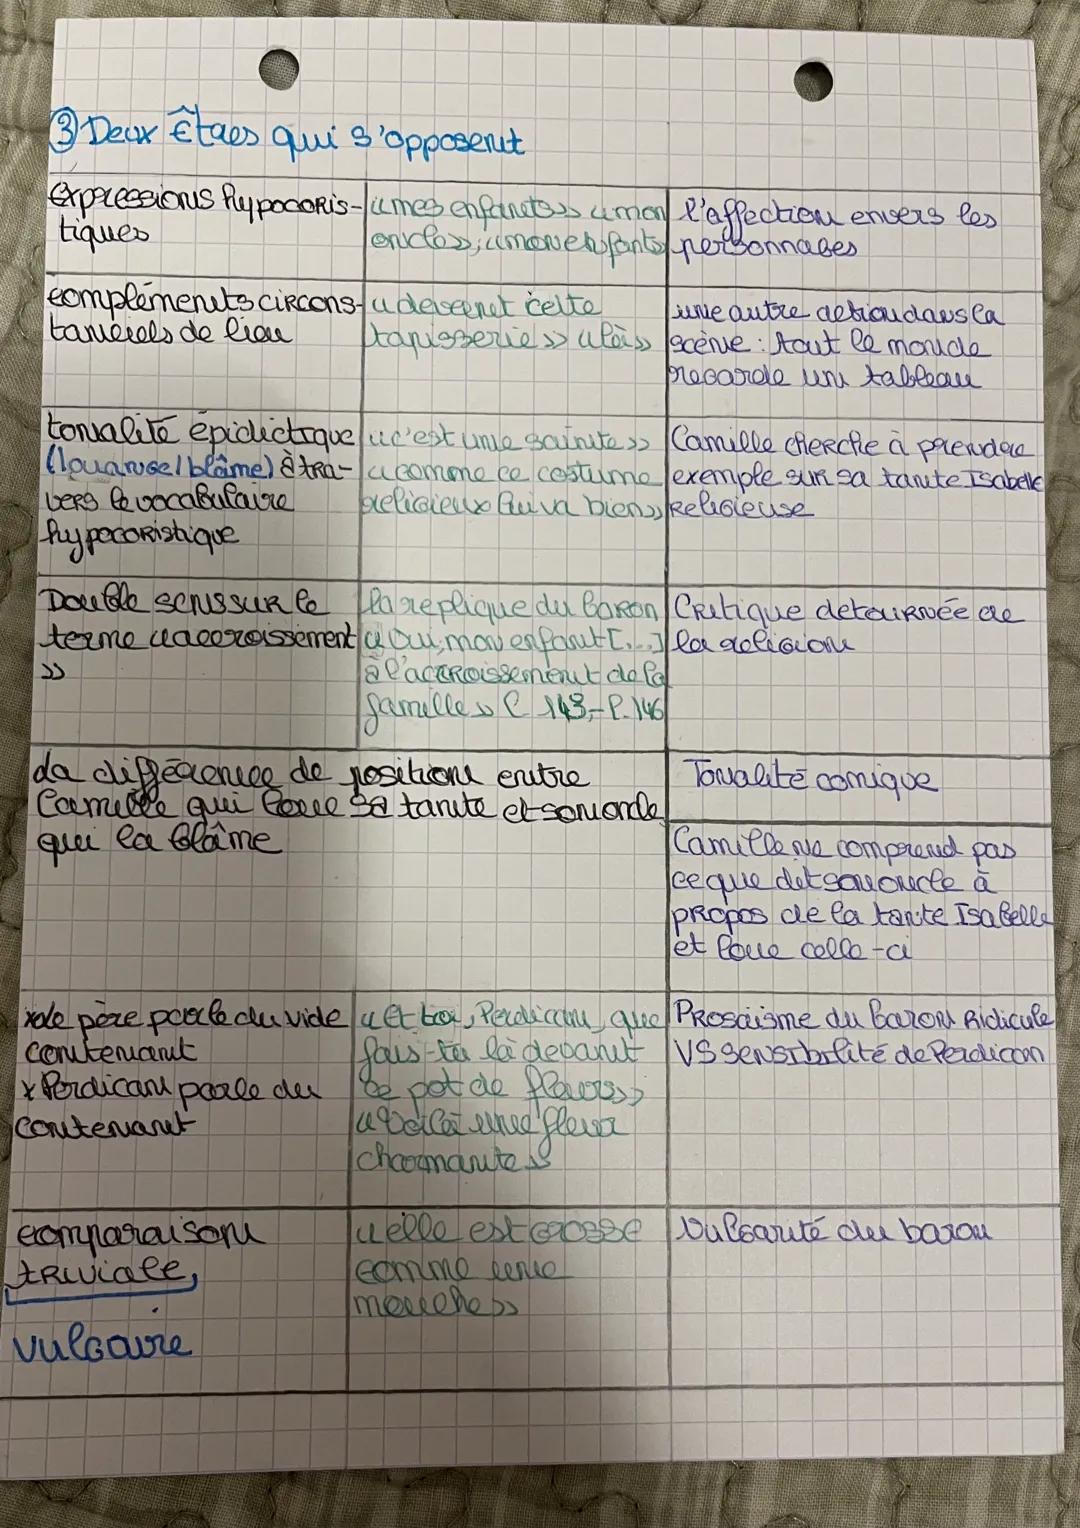 ③ Deux Êtres qui s'opposent
Expressions hypocoris-
tiques
« mes enfants » « mon
oncle », « mon enfant »
l'affection envers les
personnages
compléments circons-
tanciels de lieu
« devant cette
tapisserie » « là »
une autre action dans la
scène : tout le monde
regarde un tableau
tonalité épidictique
(louange/blâme) à tra-
vers le vocabulaire
hypocoristique
« c'est une sainte »
« comme ce costume
religieux lui va bien »
Camille cherche à prendre
exemple sur sa tante Isabelle
Religieuse
Double sens sur le
terme « accroissement
»
la réplique du Baron
« Oui, mon enfant [...]
à l'accroissement de la
famille » l 143,-P.146
Critique détournée de
la religion
La différence de position entre
Camille qui loue sa tante et son oncle
qui la blâme
Tonalité comique
Camille ne comprend pas
ce que dit son oncle à
propos de la tante Isabelle
et loue celle-ci
x le père parle du vide
contenant
x Perdican parle du
contenant
« Et toi, Perdican, que
fais-tu là devant
ce pot de fleurs »
« Voilà une fleur
charmante »
Prosaïsme du Baron Ridicule
VS sensibilité de Perdican
comparaison
triviale,
vulgaire
« elle est grosse
comme une
mouche »
Vulgarité du baron